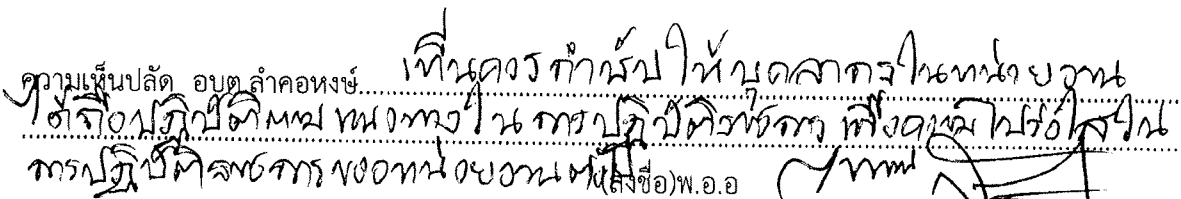 ความเห็นปลัด อบต.ลำคอหงษ์ เห็นควรกำชับให้บุคลากรในหน่วยงาน
ได้ถือปฏิบัติตามแนวทางในการปฏิบัติราชการ เพื่อความโปร่งใสใน
การปฏิบัติราชการของหน่วยงานต่อไป (ลงชื่อ)พ.อ.อ